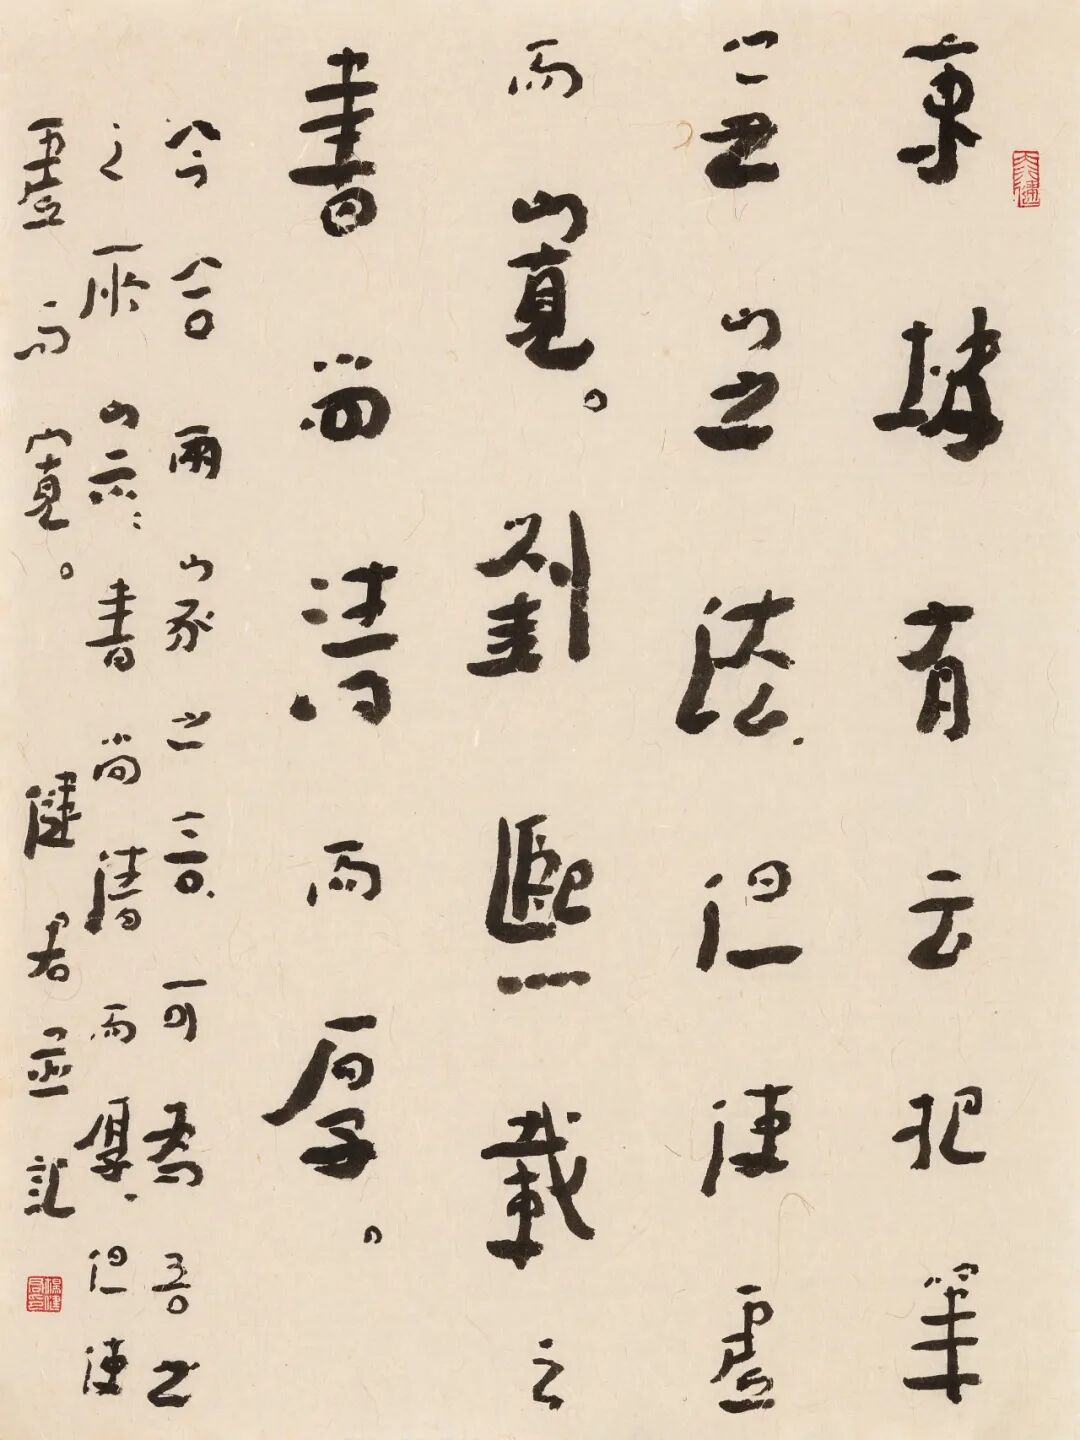 東坡有云把筆
無定法但使虛
而寬。劉熙載之
書尚清而厚。
今合兩家之言可為吾
之 宗書尚清而厚但使
虛而寬。健君並記